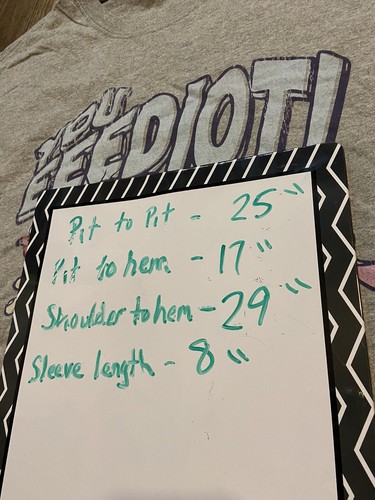 You
EEEDIOT!
Pit to Pit - 25"
Pit to hem - 17"
Shoulder to hem - 29"
Sleeve length - 8"